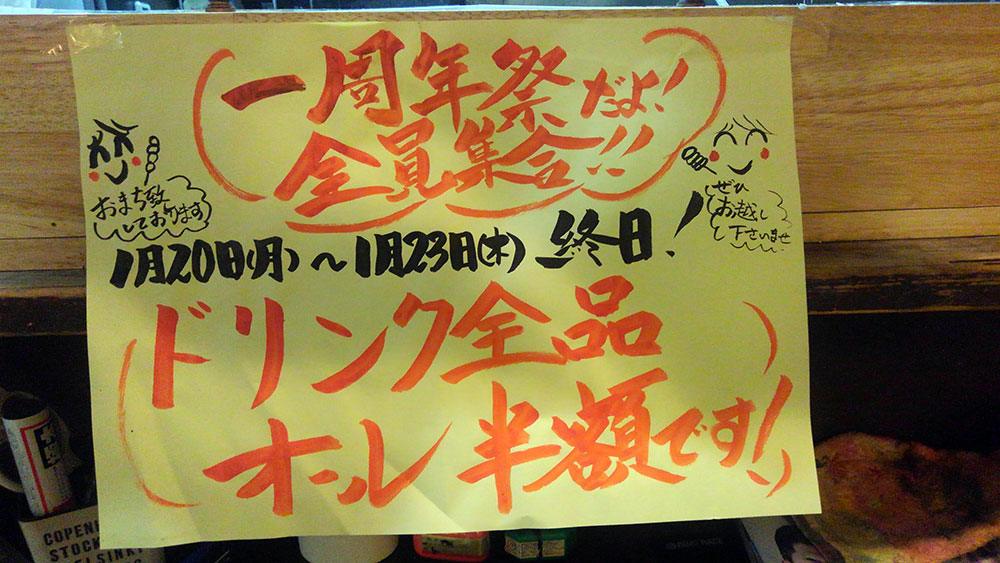 一周年祭だよ!
全員集合!!
おまち致
しております
ぜひ
お越し
下さいませ
1月20日(月)～1月23日(木) 終日!
ドリンク全品
オール 半額です!!
COPENH
STOCK
ELSINKI